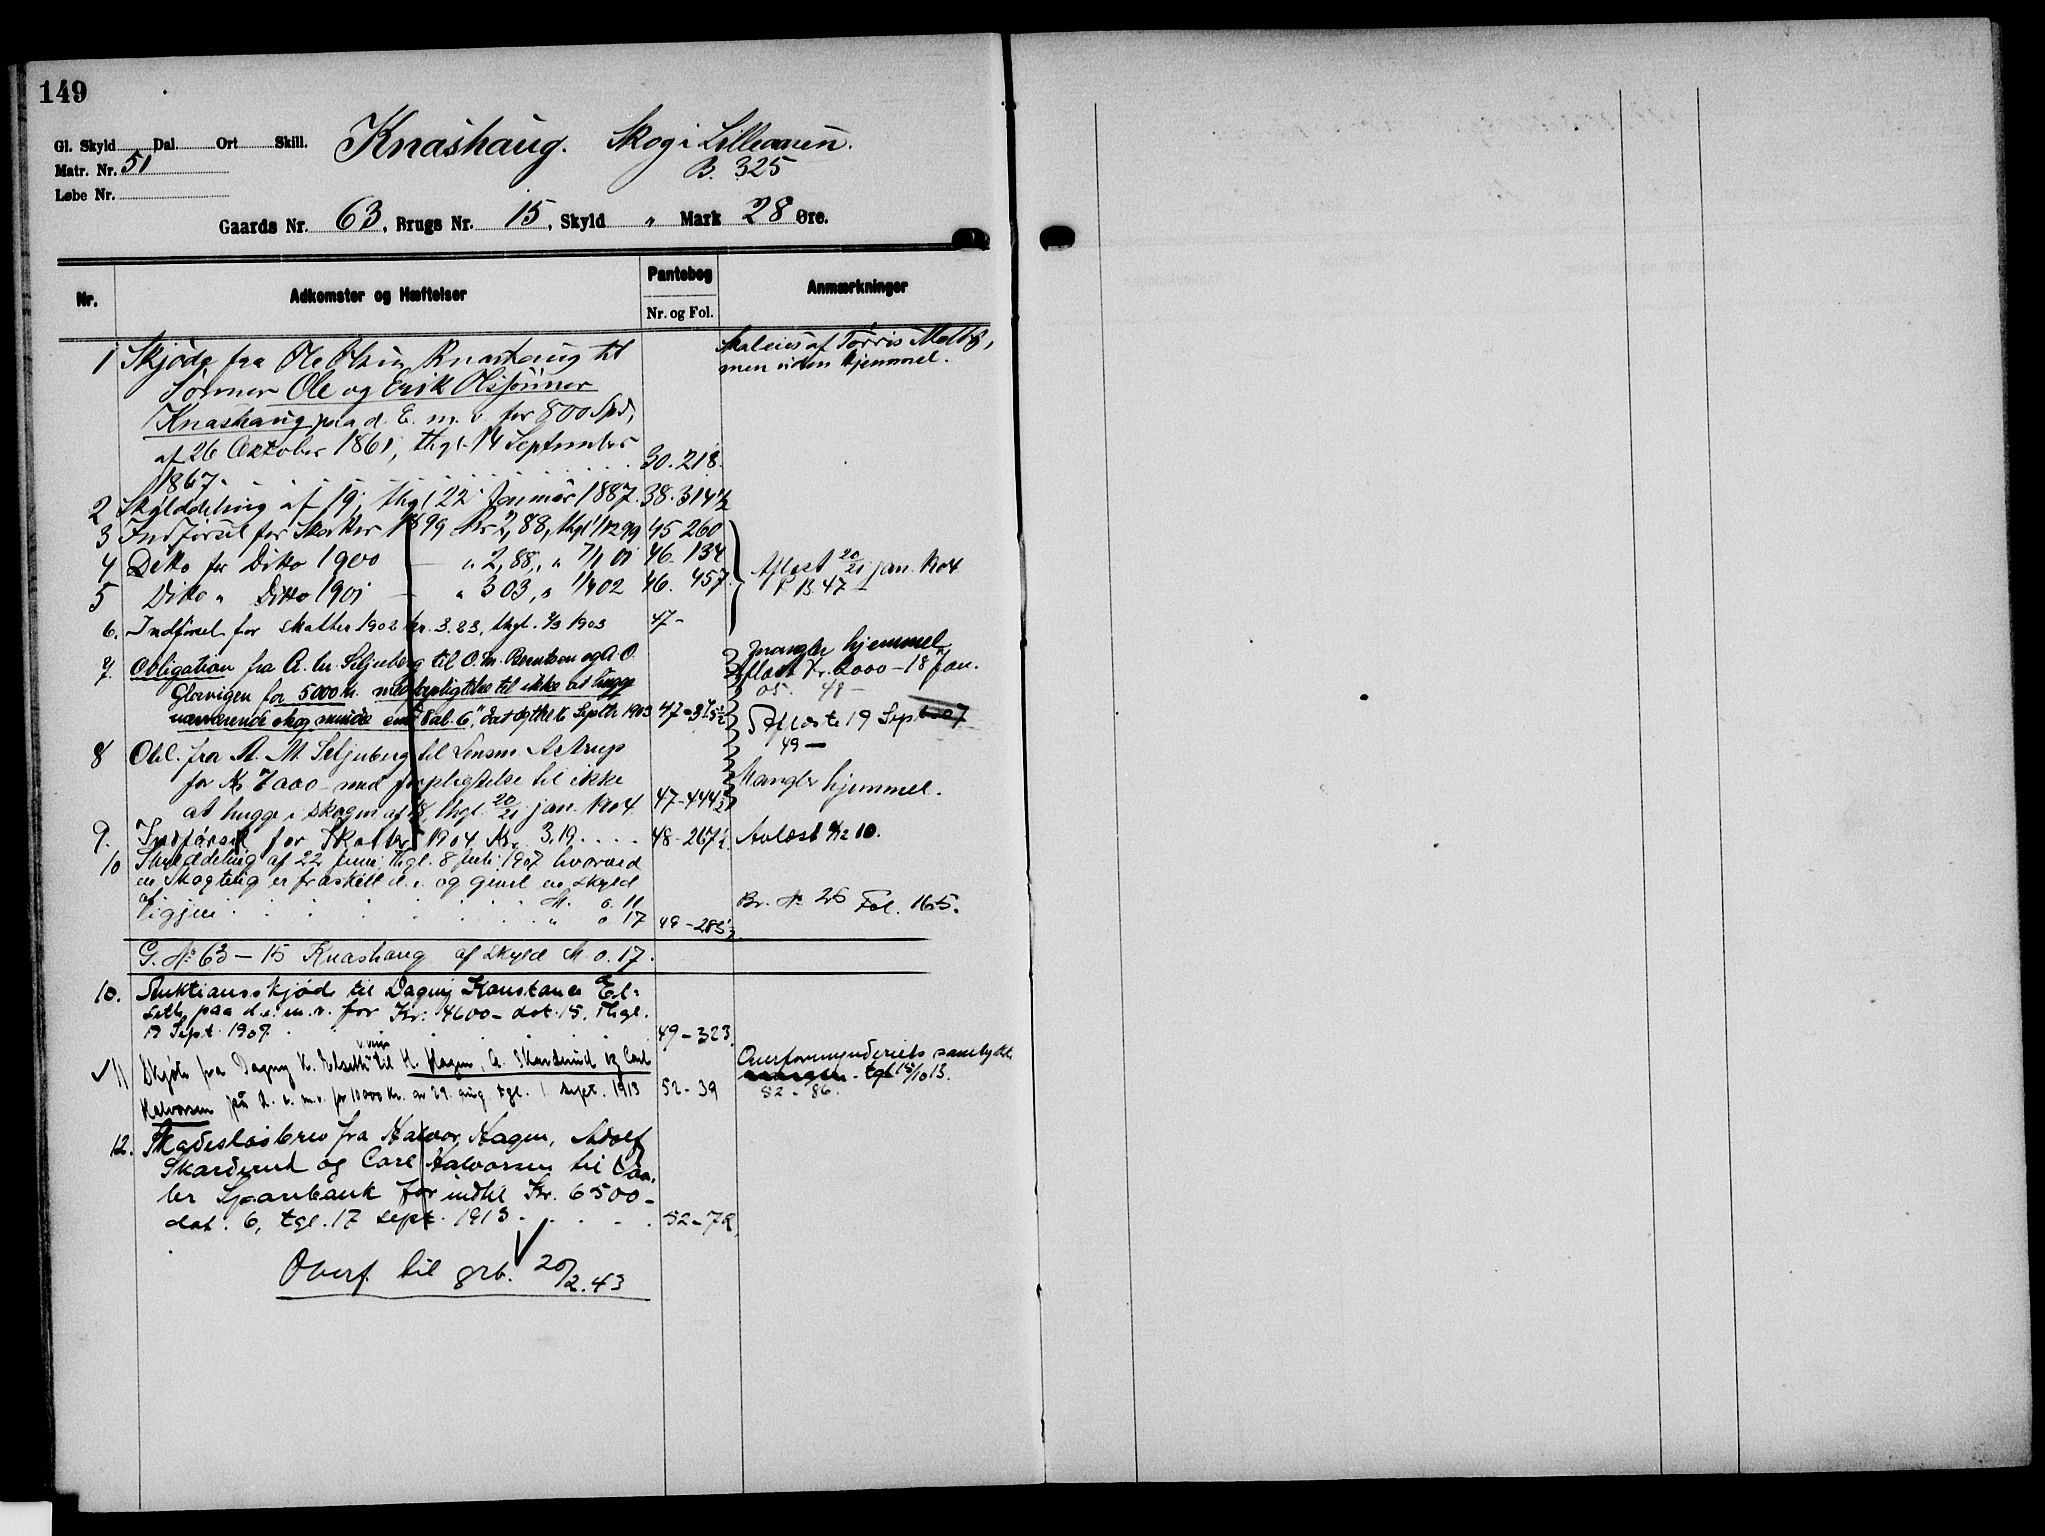 149
Gl. Skyld Dal. Ort Skill. Knashaug. Skog i Lilleaaen.
Matr. Nr. 51 B. 325
Løbe Nr.
Gaards Nr. 63, Brugs Nr. 15, Skyld " Mark 28 Øre.
Nr. Adkomster og Hæftelser Pantebog Anmærkninger
Nr. og Fol.
1 Skjøde fra Ole Olsen Knashaug til
Sønner Ole og Erik Olssønner
Knashaug paa d. E. m. v. for 800 Spd,
af 26 Oktober 1861, thgl. 14 September
1867. 30. 218.
Skal eies af Tørris Moltb,
men uden hjemmel.
2 Skylddeling af 19, thgl 22 Januar 1887. 38. 314½
3 Indførsel for Skatter 1899 Kr 2,88, thgl 1/12 99 45 260
4 Ditto for Ditto 1900 — " 2,88, " 7/1 01 46. 134
5 Ditto " Ditto 1901 — " 3 03, " 1/4 02 46. 457.
Aflæst 20/21 jan. 1904
P B. 47 —
6. Indførsel for skatter 1902 kr. 3.23, thgl. 2/3 1903 47 -
7. Obligation fra A. M. Seljuberg til O. M. Berntsen og A. O.
Glorvigen for 5000 kr. med forpligtelse til ikke at hugge
nuværende skog mindre end 8 al. 6", dat og thl 16 Septbr 1903 47 - 375½
Mangler hjemmel
Aflæst Kr. 2000 - 18 Jan.
05. 48 —
Aflæste 19 Sept 1907
49 —
8 Obl. fra A. M. Seljuberg til Lensm Astrup
for Kr 7000 med forpligtelse til ikke
at hugge i skogen af 18, thgl. 20/21 jan. 1904. 47 - 444½
Mangler hjemmel.
9. Indførsel for Skatter 1904 Kr. 3,19 . . . . 48 - 267½ Avlæst 4/12 10.
10 Skylddeling af 22 Juni, thgl. 8 Juli 1907 hvorved
en Skogteig er fraskilt d. e. og givet en skyld
af . . . M. 0. 11
Igjen . . . " 0 17 49 - 285½
Br. № 26 Fol. 165.
G. № 63 - 15 Knashaug af skyld M 0. 17.
10. Auktionsskjøde til Dagny Konstance El-
seth paa d. e. m. v. for Kr. 4600 - dat. 15, Thgl.
19 Sept. 1907. 49 - 323.
✓ 11 Skjøte fra Dagny K. Elseth til H. Hagen, A. Skarderud og Carl
Halvorsen på d. e. m. v. for 10000 kr. av 29. aug. tgl. 1. sept. 1913 52 - 39
Overformynderiets samtykke
tgl 15/10 13.
52 - 86.
12. Skadesløsbrev fra Halvor Hagen, Adolf
Skarderud og Carl Halvorsen til Vaa-
ler Sparebank for indtil Kr. 6500 -
dat. 6, tgl. 17 sept. 1913 . . . . 52 - 72.
Overf. til grb. 20/2. 43